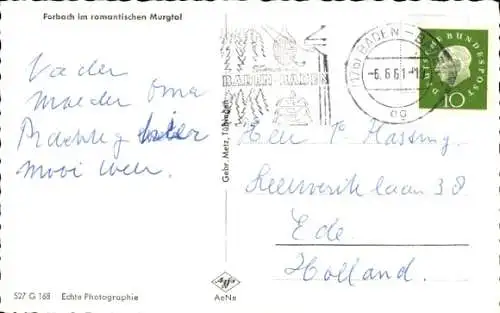 Forbach im romantischen Murgtal
Vader
Moeder Oma
Prachtig
mooi weer.
527 G 168 Echte Photographie
Gebr. Metz, Tübingen
Agfa
AeNe
BADEN-BADEN
(17b) BADEN-
-6.6.61-1
DEUTSCHE BUNDESPOST
10
Hassing
38
Ede.
Holland.